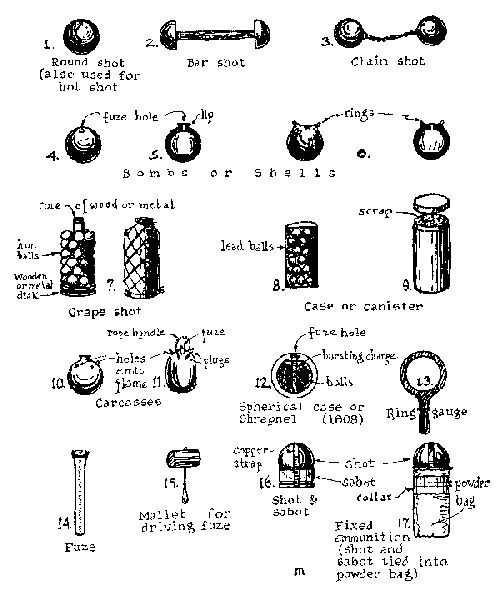 1.
Round shot
(also used for
hot shot
2.
Bar shot
3.
Chain shot
fuze hole
lip
rings
4.
5.
6.
Bombs or Shells
fuze of wood or metal
iron
balls
Wooden
or metal
disk
7.
Grape shot
lead balls
8.
scrap
9.
Case or canister
rope handle
fuze
holes
emit
flame
plugs
10.
11.
Carcasses
fuze hole
bursting charge
balls
12.
Spherical case or
Shrapnel (1808)
13.
Ring gauge
14.
Fuze
15.
Mallet for
driving fuze
copper
strap
shot
sabot
collar
powder
bag
16.
Shot &
sabot
17.
Fixed
ammunition
(shot and
sabot tied into
powder bag)
m